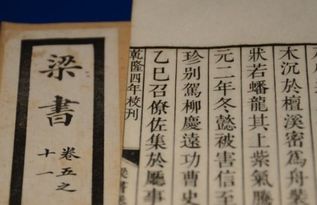 木沉於檀溪密為舟裝
狀若蟠龍其上紫氣騰
元二年冬懿被害信至
珍別駕柳慶遠功曹史
乙巳召僚佐集於廳事
乾隆四年校刊
梁書
卷五之
十一